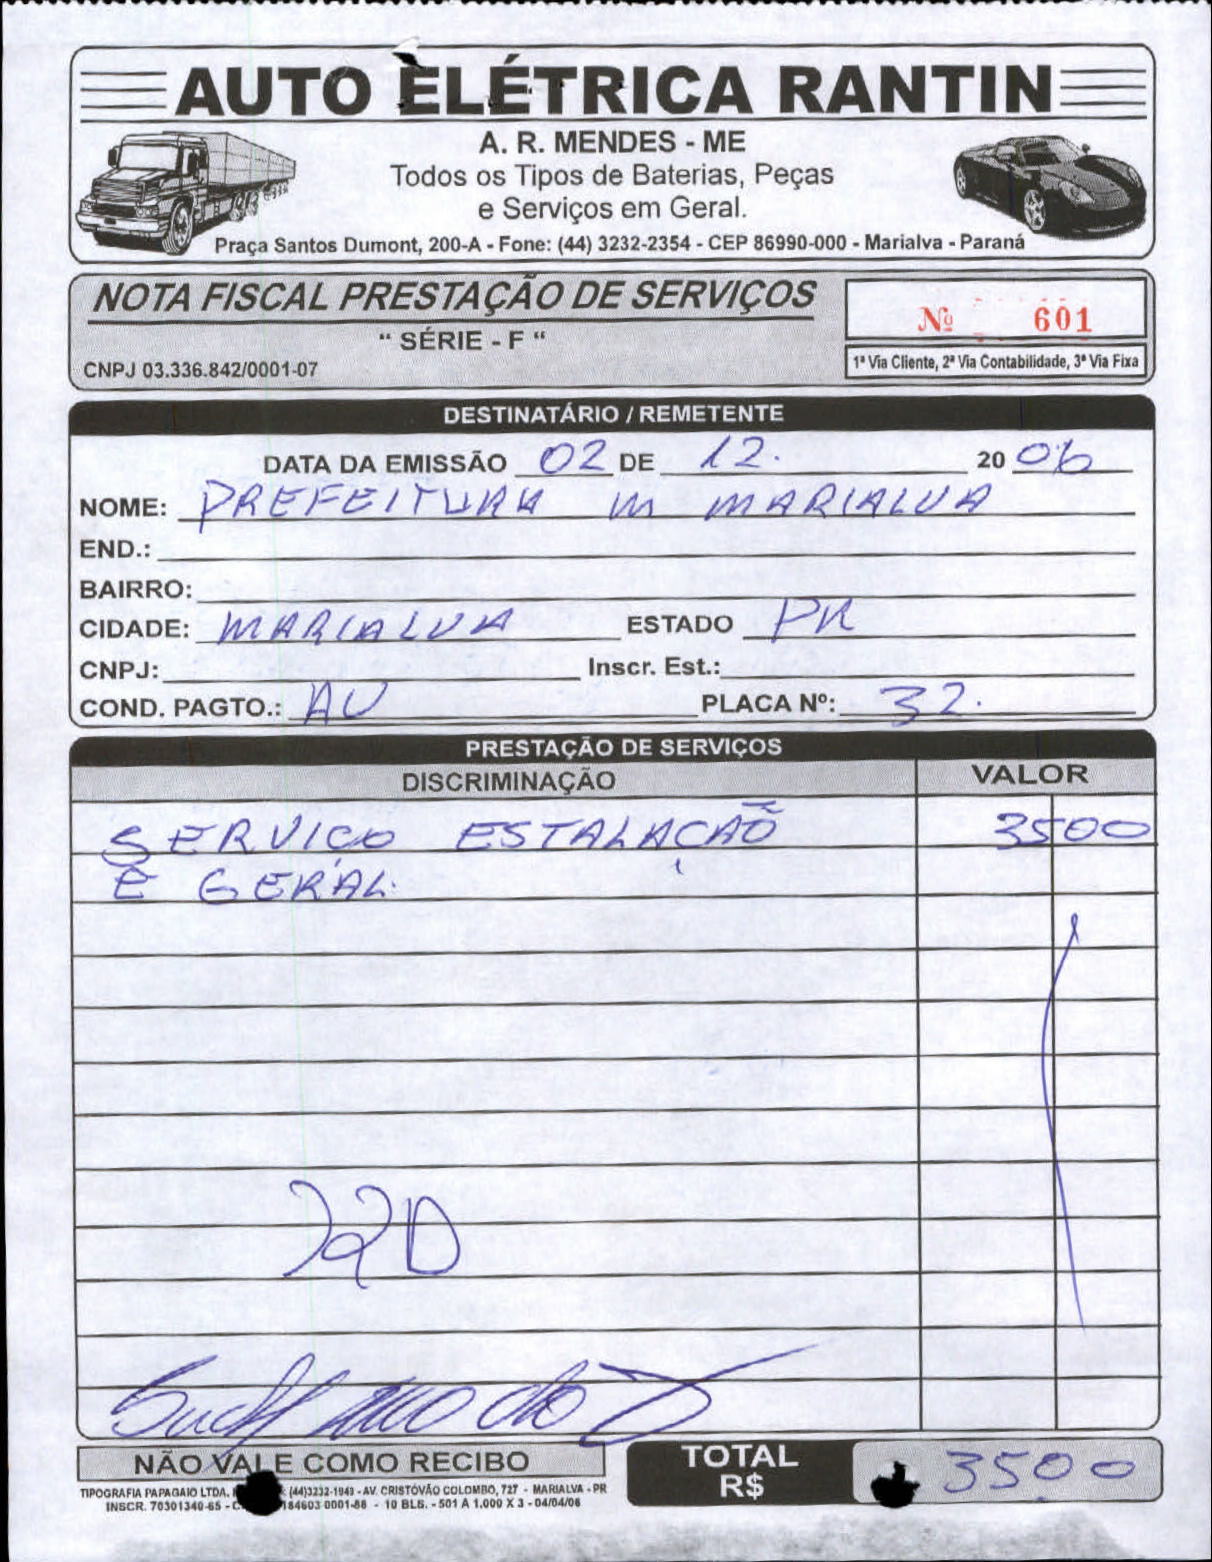 AUTO ELÉTRICA RANTIN
A. R. MENDES - ME
Todos os Tipos de Baterias, Peças
e Serviços em Geral.
Praça Santos Dumont, 200-A - Fone: (44) 3232-2354 - CEP 86990-000 - Marialva - Paraná
NOTA FISCAL PRESTAÇÃO DE SERVIÇOS
" SÉRIE - F "
CNPJ 03.336.842/0001-07
Nº 601
1ª Via Cliente, 2ª Via Contabilidade, 3ª Via Fixa
DESTINATÁRIO / REMETENTE
DATA DA EMISSÃO 02 DE 12. 20 06
NOME: PREFEITURA M MARIALVA
END.:
BAIRRO:
CIDADE: MARIALVA ESTADO PR
CNPJ: Inscr. Est.:
COND. PAGTO.: AV PLACA Nº: 32.
PRESTAÇÃO DE SERVIÇOS
DISCRIMINAÇÃO VALOR
SERVIÇO ESTALAÇAÕ 3500
E GERAL.
NÃO VALE COMO RECIBO
TOTAL
R$ 3500
TIPOGRAFIA PAPAGAIO LTDA. (44)3232-1943 - AV. CRISTÓVÃO COLOMBO, 727 - MARIALVA - PR
INSCR. 70301340-65 - 0001-88 - 10 BLS. - 501 A 1.000 X 3 - 04/04/06